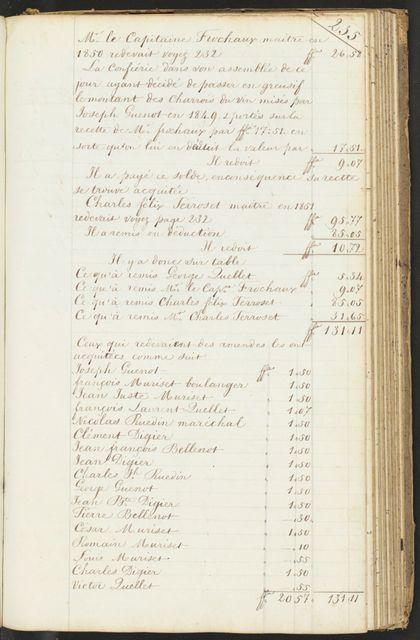 235
Mr. le Capitaine Frochaux maitre en
1850 redevait voyez 232 ff 26.58
La Confrérie dans son assemblée de ce
jour ayant décidé de passer en greusif
le montant des Charrois du vin misés par
Joseph Guenot en 1849. & portés sur la
recette de Mr. frochaux par ff 17.51. en
sorte qu'on lui en déduit la valeur par 17.51
Il redoit ff 9.07
Il a payé ce solde, en conséquence sa recette
se trouve acquitée
Charles félix Perroset maitre en 1851
redevait voyez page 232 ff 95.77
Il a remis en déduction 85.05
Il redoit ff 10.72
Il y a donc sur table
Ce qu'à remis George Quellet ff 5.34
Ce qu'à remis Mr. le Cape. Frochaux 9.07
Ce qu'à remis Charles félix Perroset 85.05
Ce qu'à remis Mr. Charles Perroset 31.65
ff 131.11
Ceux qui redevaient des amendes les ont
acquitées comme suit
Joseph Guenot ff 1.50
françois Muriset boulanger 1.50
Jean Juste Muriset 1.50
françois Laurent Quellet 1.07
Nicolas Ruedin maréchal 1.50
Clément Digier 1.50
Jean françois Bellenot 1.50
Jean Digier 1.50
Charles Jh. Ruedin 1.50
George Guenot 1.50
Jean Bte. Digier 1.50
Pierre Bellenot .50
César Muriset 1.50
Romain Muriset .10
Louis Muriset .55
Charles Digier 1.50
Victor Quellet .55
ff 20.57 131.11